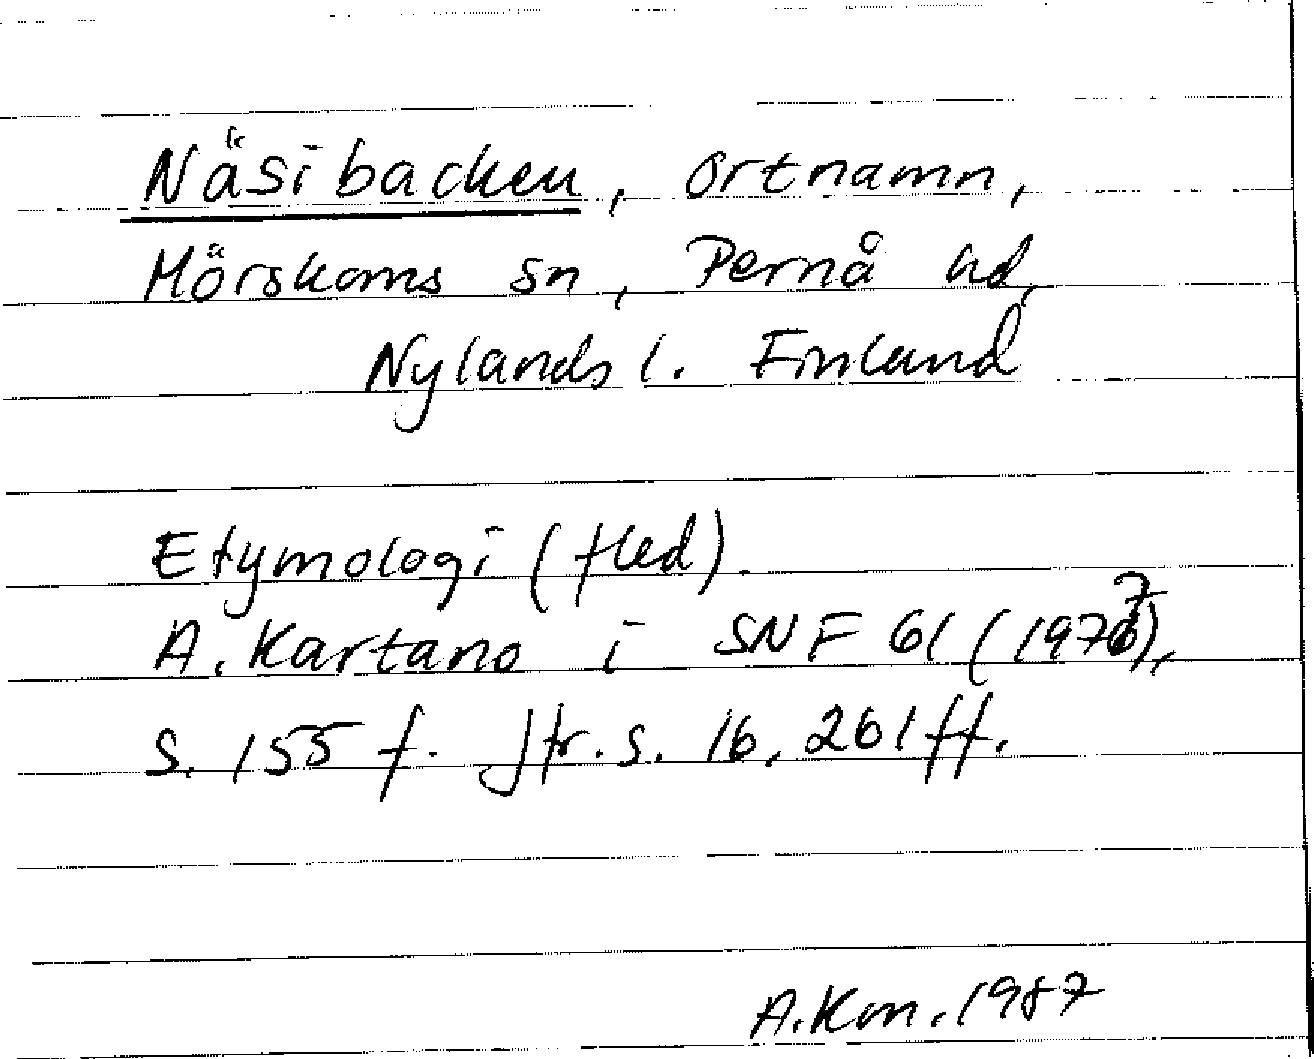 Näsibacken, ortnamn,
Mörskoms sn, Pernå hd,
Nylands l. Finland
Etymologi (fled).
A. Kartano i SNF 61 (1977),
S. 155 f. Jfr. s. 16, 261 ff.
A. Km. 1987